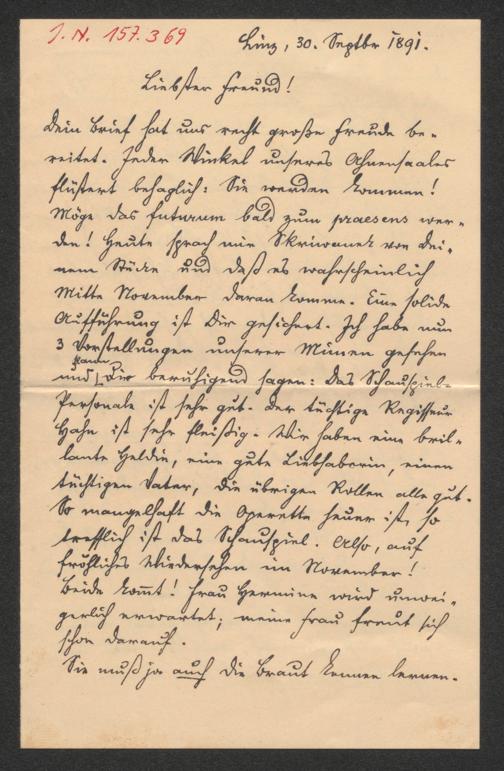 J. N. 157.369
Linz, 30. Septbr 1891.
Liebster Freund!
Dein Brief hat uns recht große Freude be-
reitet. Jeder Winkel unseres Ahnensaales
flüstert behaglich: Sie werden kommen!
Möge das futurum bald zum praesens wer-
den! Heute sprach mir Skriwanek von Dei-
nem Stücke und daß es wahrscheinlich
Mitte November daran komme. Eine solide
Aufführung ist Dir gesichert. Ich habe nun
3 Vorstellungen unserer Mimen gesehen
und kann Dir beruhigend sagen: Das Schauspiel-
Personale ist sehr gut. Der tüchtige Regisseur
Hahn ist sehr fleißig. Wir haben eine bril-
lante Heldin, eine gute Liebhaberin, einen
tüchtigen Vater, die übrigen Rollen alle gut.
So mangelhaft die Operette heuer ist, so
trefflich ist das Schauspiel. Also, auf
fröhliches Wiedersehen im November!
Beide kommt! Frau Hermine wird unwei-
gerlich erwartet; meine Frau freut sich
schon darauf.
Sie muß ja auch die Braut kennen lernen.